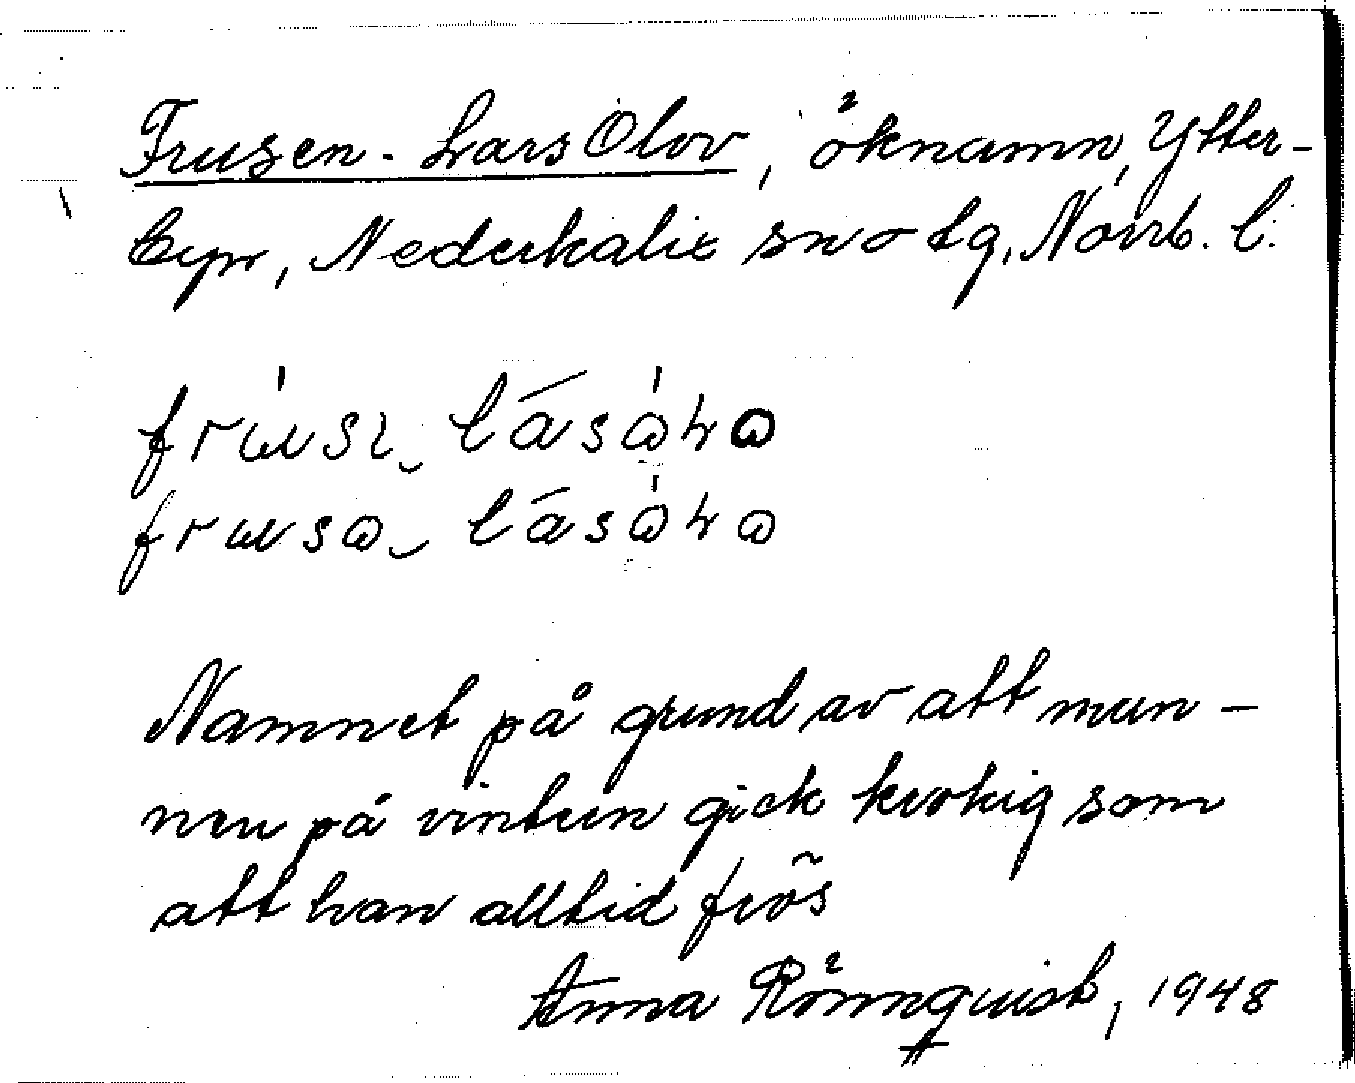 Frusen-Lars Olov, öknamn, Ytter-
byn, Nederkalix sn o tg, Norrb. l.
Namnet på grund av att man-
nen på vintern gick krokig som
att han alltid frös
Anna Rönnquist, 1948